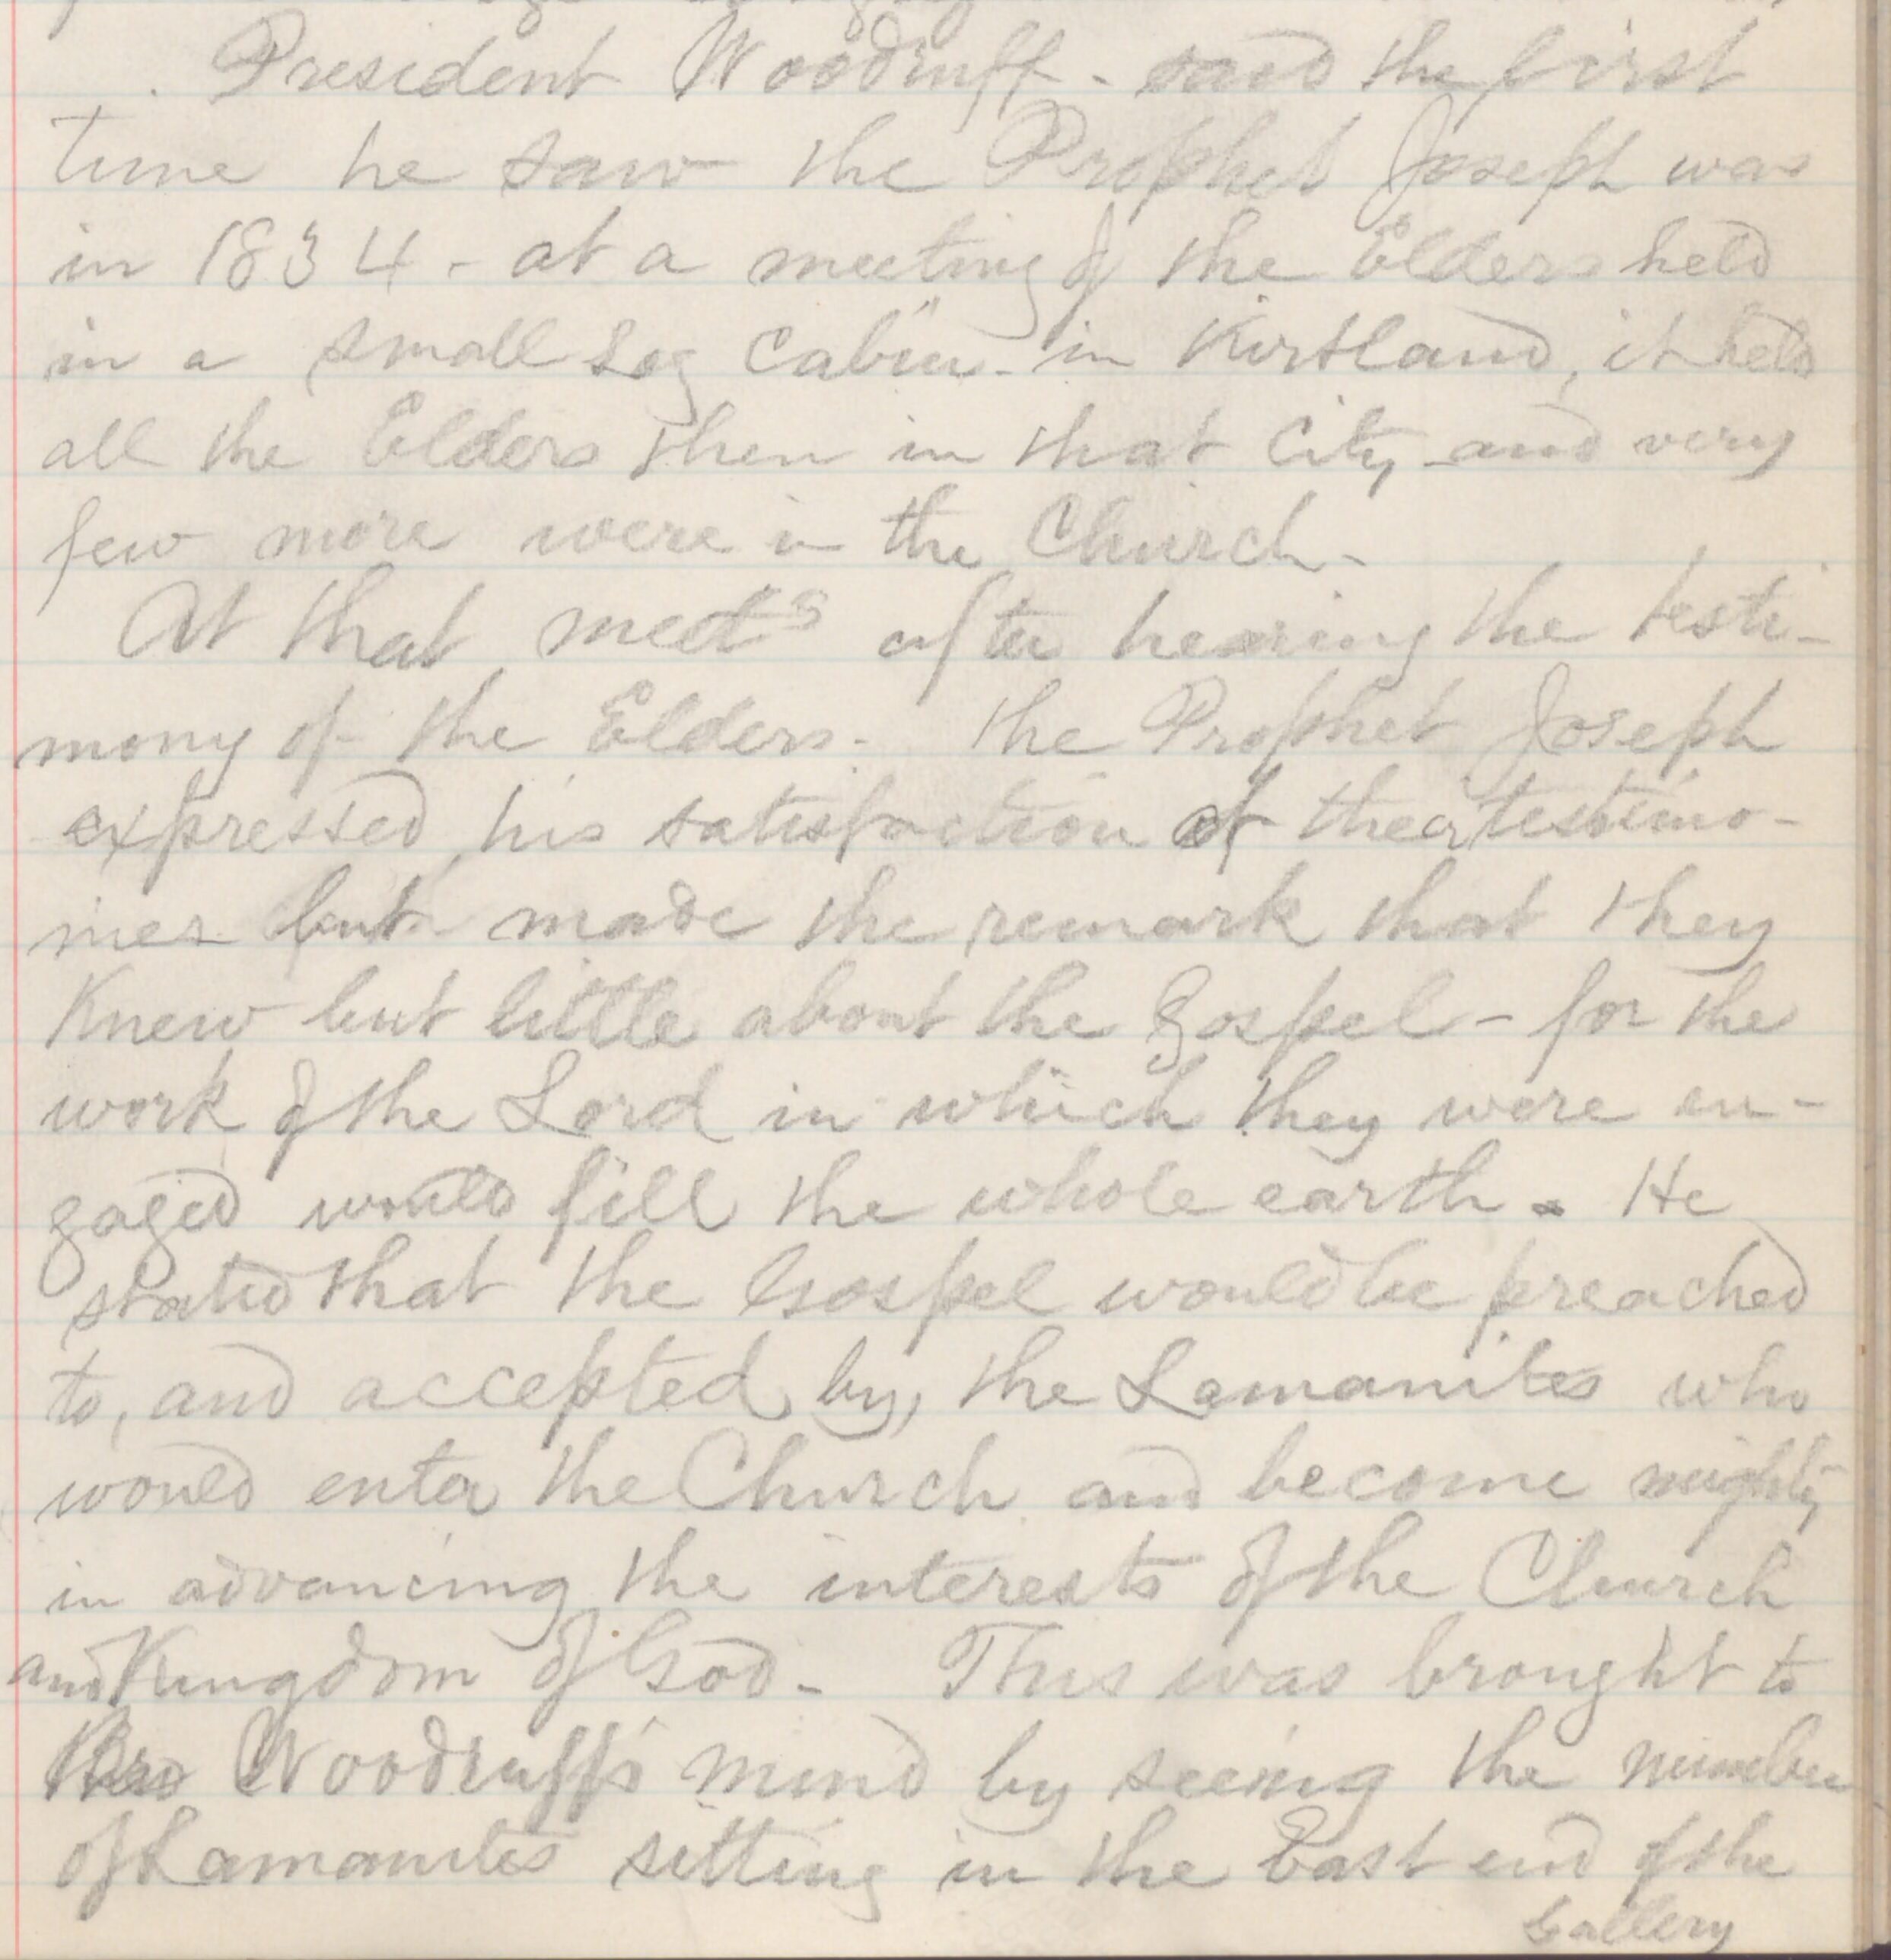 President Woodruff - said the first
time he saw the Prophet Joseph was
in 1834 - at a meeting of the Elders held
in a small Log Cabin - in Kirtland, it held
all the Elders then in that City - and very
few more were in the Church -
At that meetg after hearing the testi-
mony of the Elders - the Prophet Joseph
expressed his satisfaction at their testimo-
nies but made the remark that they
Knew but little about the Gospel - for the
work of the Lord in which they were en-
gaged would fill the whole earth. He
stated that the Gospel would be preached
to, and accepted by, the Lamanites who
would enter the Church and become mighty
in advancing the interests of the Church
and Kingdom of God - This was brought to
Bro Woodruff's mind by seeing the number
of Lamanites sitting in the East end of the
Gallery